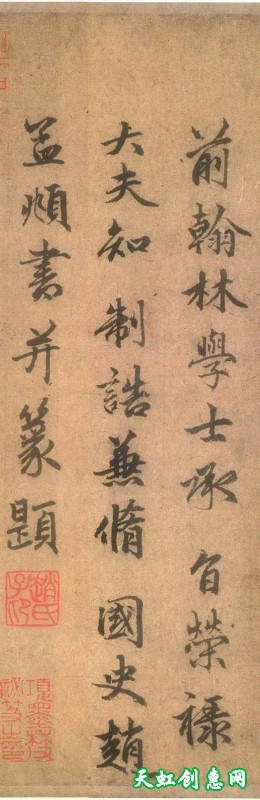 前翰林學士承旨榮祿
大夫知制誥兼脩國史趙
孟頫書并篆題
趙氏子昂
天虹创惠网